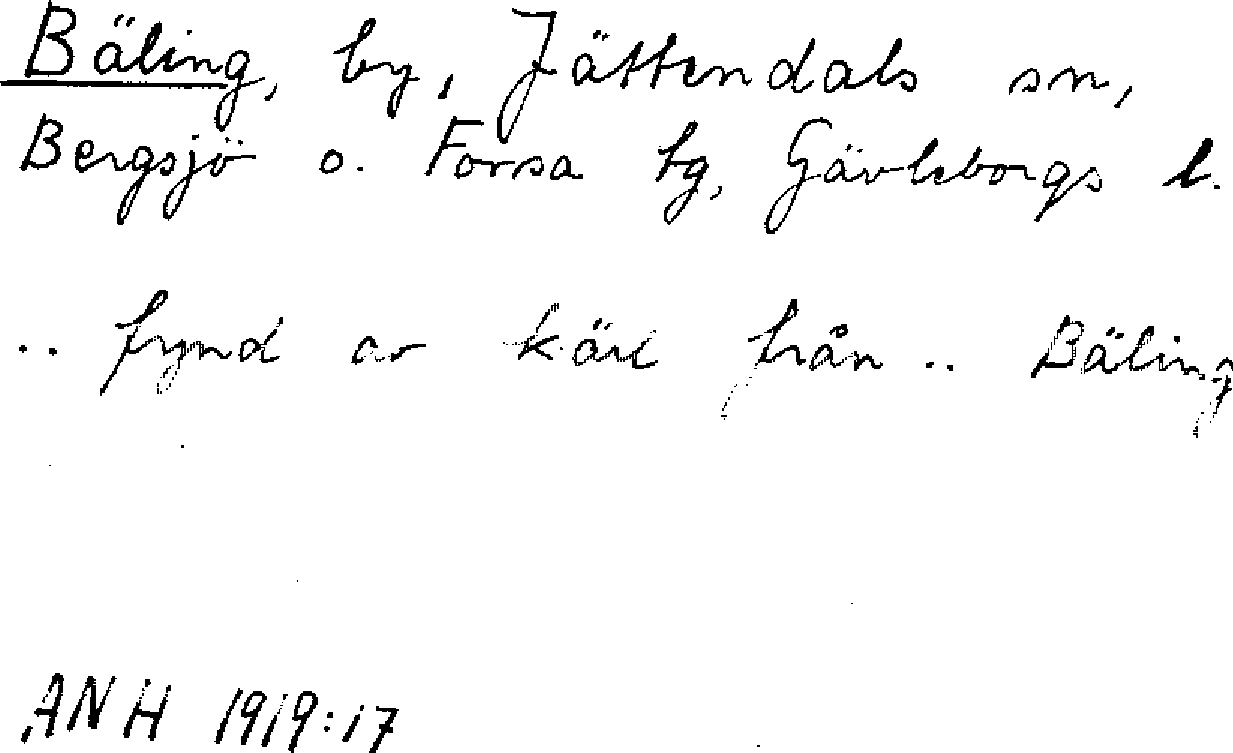 Bäling, by, Jättendals sn,
Bergsjö o. Forsa tg, Gävleborgs l.
.. fynd av kärl från .. Bäling
ANH 1919:17